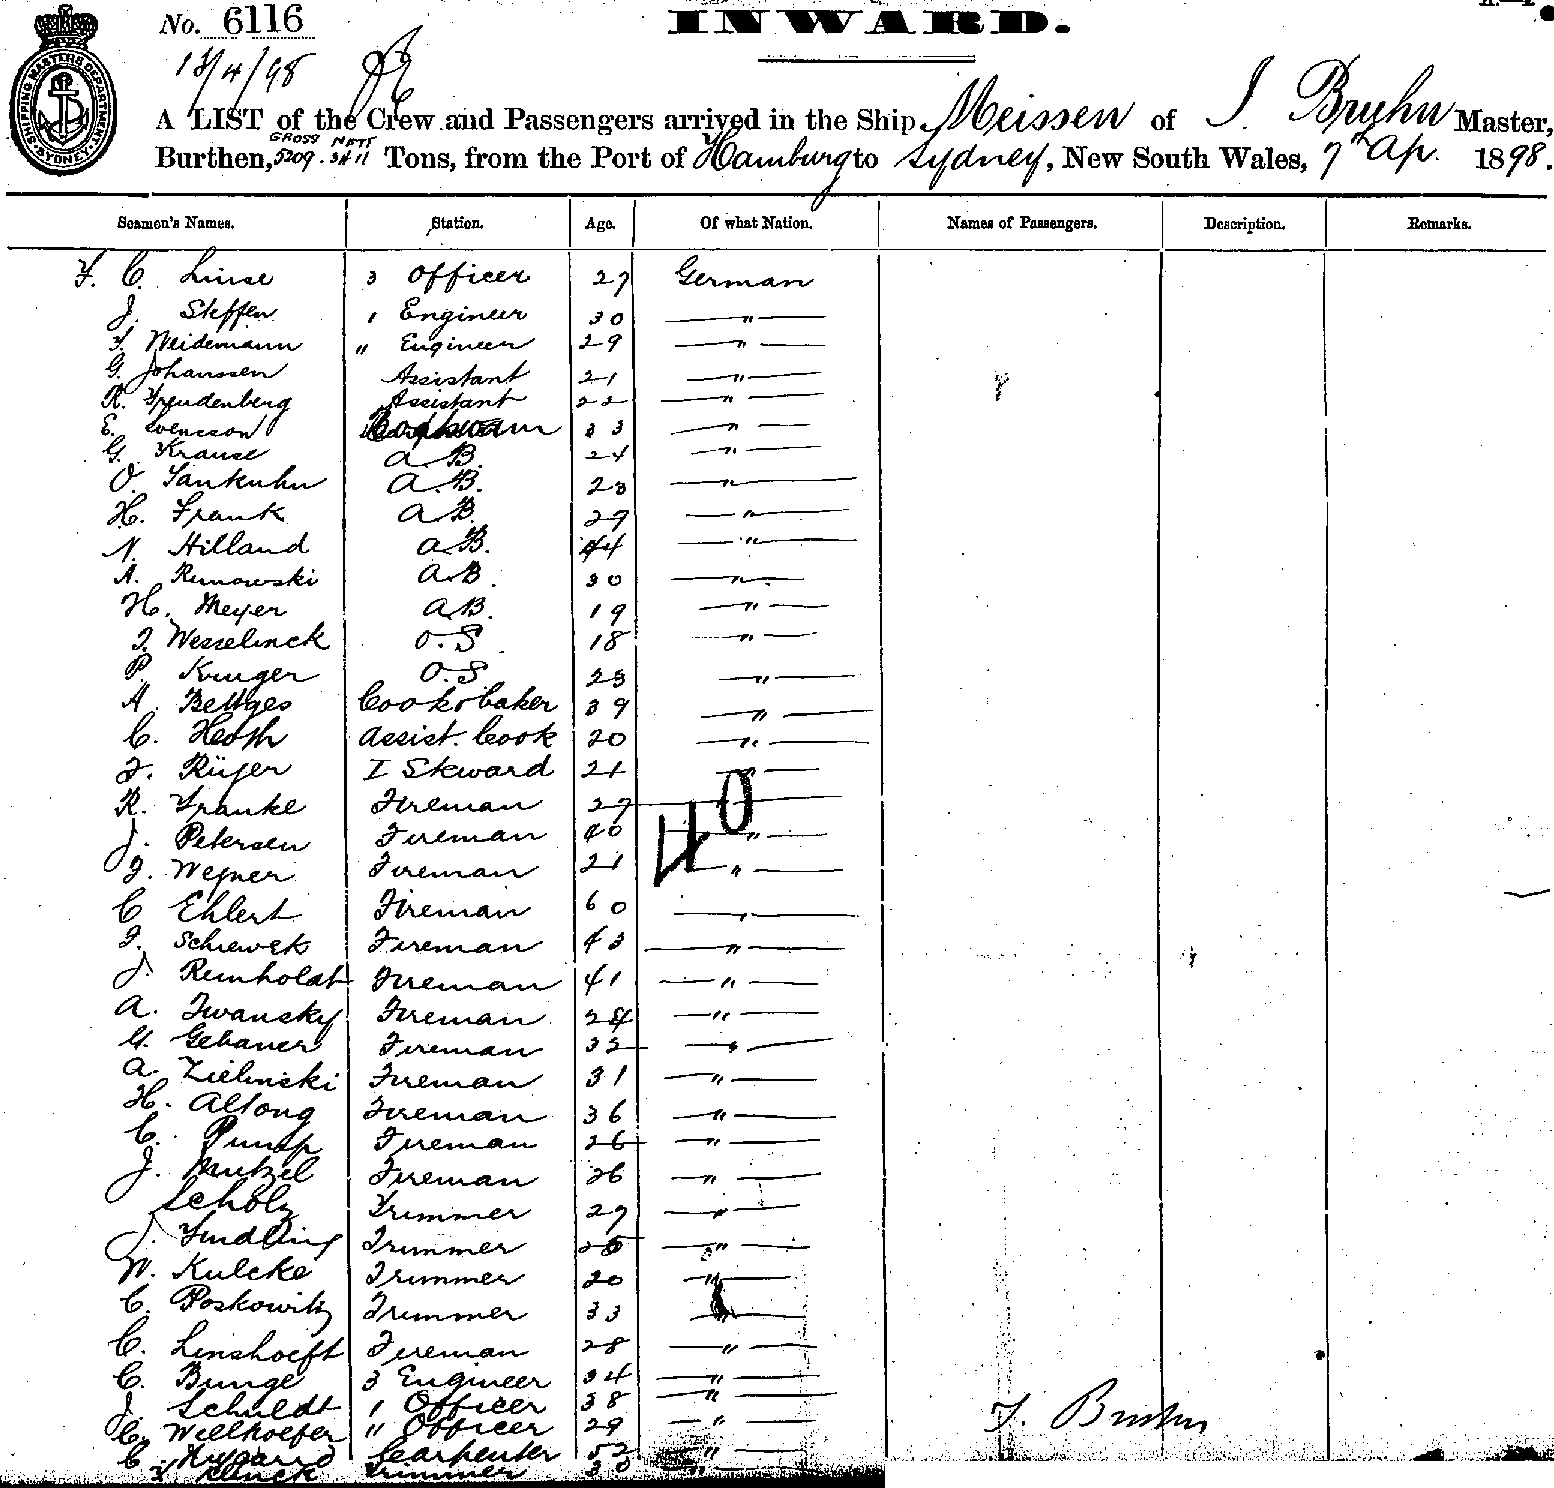 No. 6116
INWARD.
13/4/98
SHIPPING MASTERS DEPARTMENT SYDNEY
A LIST of the Crew and Passengers arrived in the Ship Meissen of J. Bruhn Master,
GROSS NETT
Burthen, 5209. 3411 Tons, from the Port of Hamburg to Sydney, New South Wales, 7th Ap. 1898.
Seamen's Names. Station. Age. Of what Nation. Names of Passengers. Description. Remarks.
F. C. Linse 3 Officer 27 German
J. Steffen 1 Engineer 30 "
F. Weidemann " Engineer 29 "
G. Johanssen Assistant 21 "
R. Freudenberg Assistant 22 "
E. Svensson 33 "
G. Krause A.B. 24 "
O. Tankuhn A.B. 23 "
H. Frank A.B. 29 "
N. Hilland A.B. 44 "
A. Remowski A.B. 30 "
H. Meyer A.B. 19 "
J. Wesselinck O.S. 18 "
P. Kruger O.S. 23 "
A. Bettges Cook & baker 39 "
C. Hoth Assist. Cook 20 "
F. Rüger I Steward 21 "
R. Franke Fireman 27 "
40
J. Petersen Fireman 40 "
F. Wegner Fireman 21 "
C Ehlert Fireman 60 "
F. Schiewek Fireman 43 "
J. Reinholdt Fireman 41 "
A. Iwansky Fireman 24 "
G. Gebauer Fireman 32 "
A. Zielinski Fireman 31 "
H. Altong Fireman 36 "
C. Pump Fireman 26 "
J. Fireman 26 "
Scholz Trimmer 27 "
J. Findling Trimmer "
W. Kulcke Trimmer 20 "
C. Poskowitz Trimmer 33 "
C. Linshoeft Fireman 28 "
C. Bunge 3 Engineer 34 "
J. Schuldt 1 Officer 38 "
C. Willhoefer " Officer 29 "
J. Bruhn
C. Carpenter 52 "
Trimmer 30 "